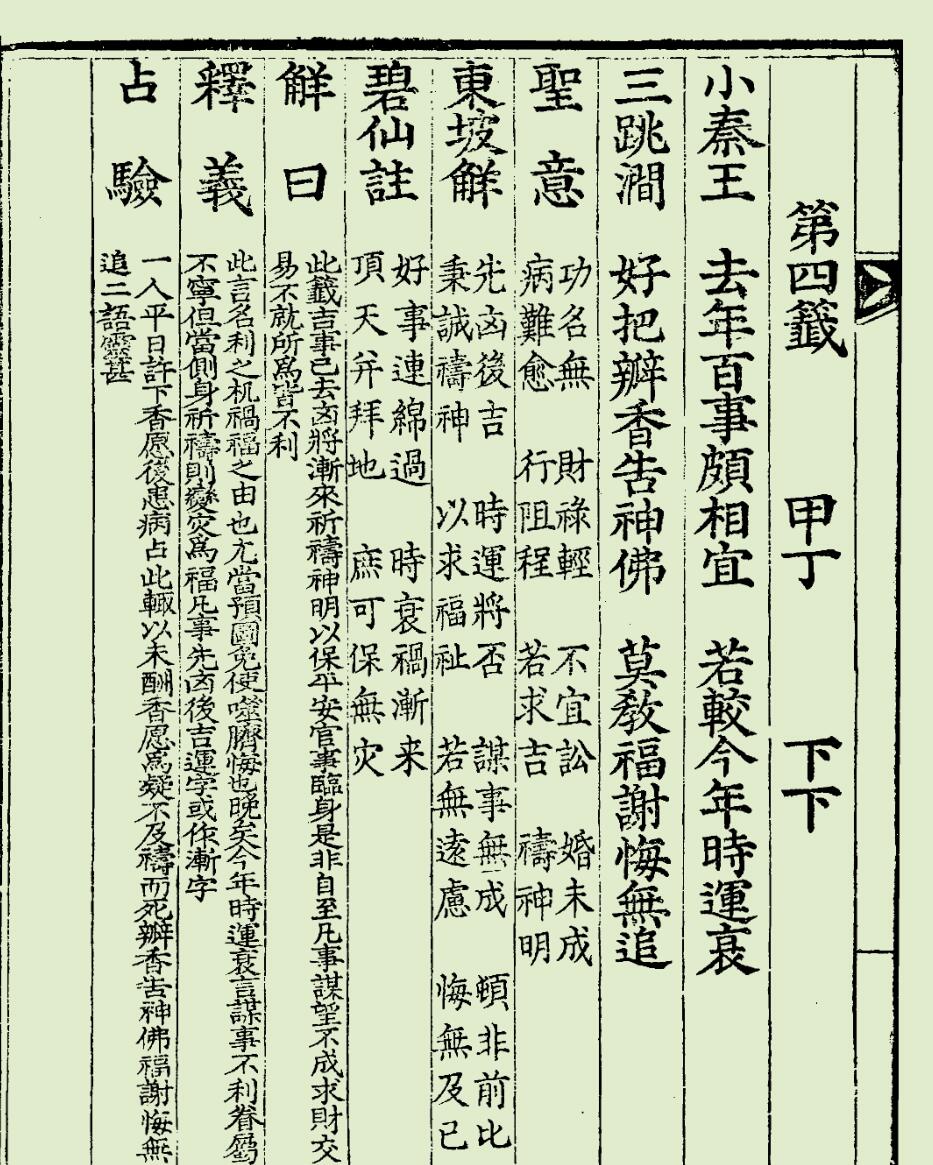 第四籤 甲丁 下下
小秦王 去年百事頗相宜 若較今年時運衰
三跳澗 好把瓣香告神佛 莫教福謝悔無追
聖意
功名無 財祿輕 不宜訟 婚未成
病難愈 行阻程 若求吉 禱神明
東坡解
先凶後吉 時運將否 謀事無成 頓非前比
秉誠禱神 以求福祉 若無遠慮 悔無及已
碧仙註
好事連綿過 時衰禍漸来
頂天并拜地 庶可保無灾
解曰
此籤吉事已去凶將漸來祈禱神明以保平安官事臨身是非自至凡事謀望不成求財交
易不就所為皆不利
釋義
此言名利之机禍福之由也尤當預圖免使噬臍悔也晚矣今年時運衰言謀事不利眷屬
不寧但當側身祈禱則變灾為福凡事先凶後吉運字或作漸字
占驗
一人平日許下香愿後患病占此輒以未酬香愿為疑不及禱而死瓣香告神佛福謝悔無
追二語靈甚